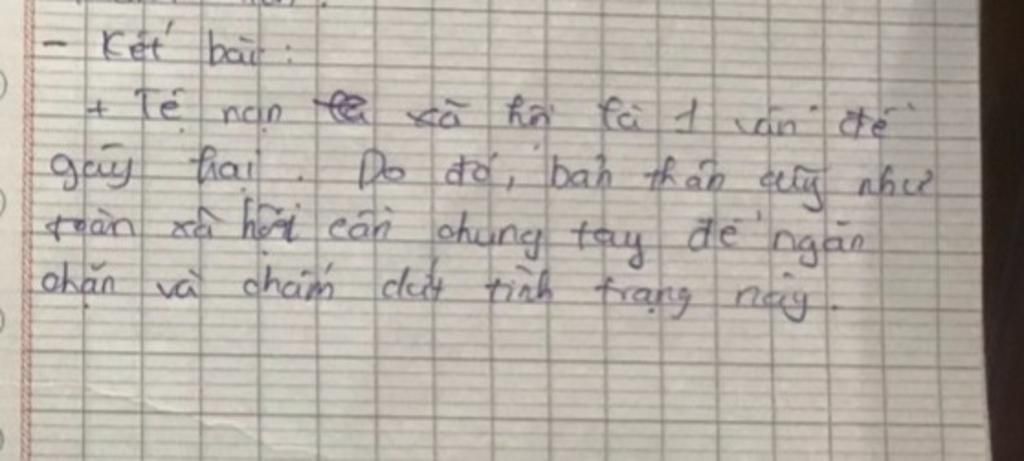 - Kết bài:
+ Tệ nạn xã hội là 1 vấn đề
gây hại. Do đó, bản thân cũng như
toàn xã hội cần chung tay để ngăn
chặn và chấm dứt tình trạng này.